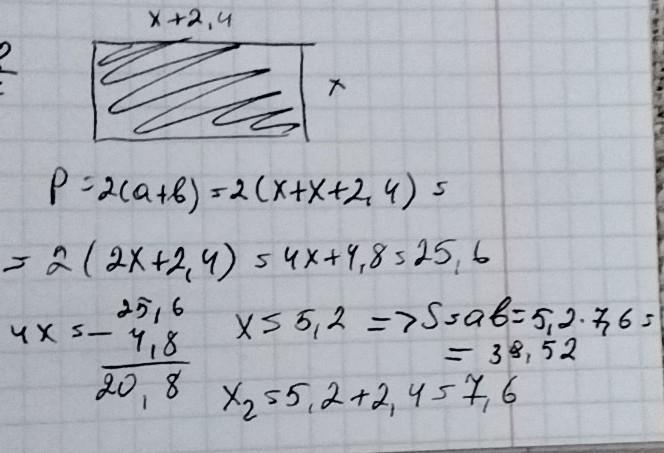 x+2,4
x
P=2(a+b)=2(x+x+2,4)=
=2(2x+2,4)=4x+4,8=25,6
4x=-25,6
4,8
20,8
x=5,2 =>S=ab=5,2·7,6=
=38,52
x₂=5,2+2,4=7,6